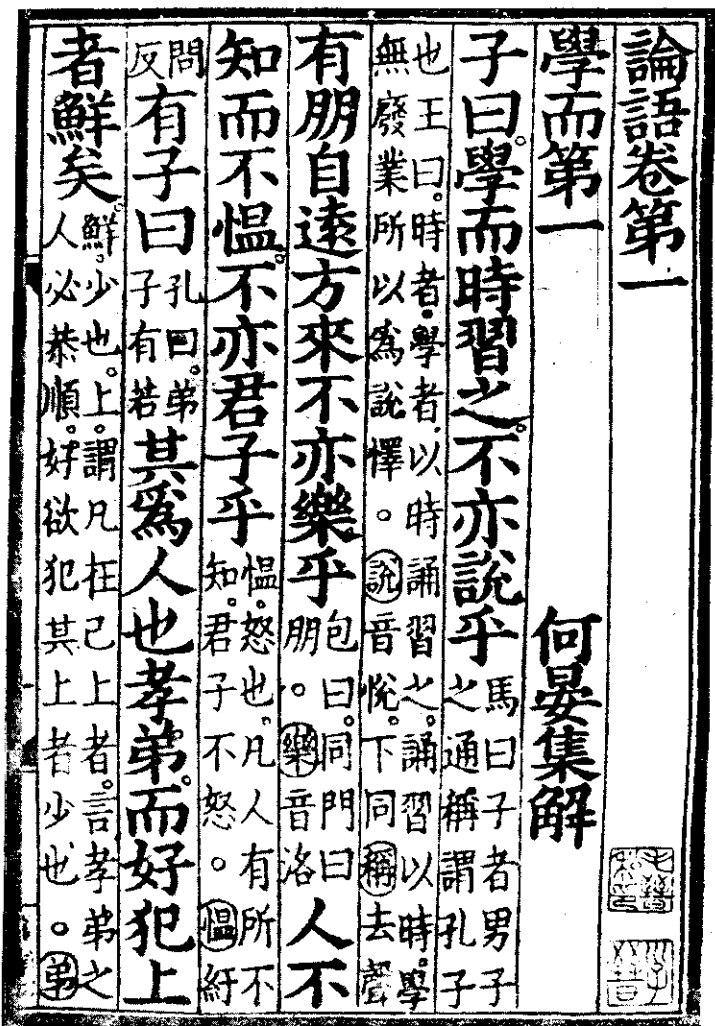 論語卷第一
學而第一　何晏集解
子曰。學而時習之。不亦說乎馬曰子者男子之通稱謂孔子
也王曰。時者。學者。以時誦習之。誦習以時。學無廢業所以爲說懌。說音悅。下同稱去聲
有朋自遠方來不亦樂乎包曰。同門曰朋。樂音洛人不
知而不愠。不亦君子乎愠。怒也。凡人有所不知。君子不怒。愠紆
問反有子曰孔曰。弟子有若其爲人也孝弟。而好犯上
者鮮矣。鮮。少也。上。謂凡在己上者。言孝弟之人必恭順。好欲犯其上者少也。弟